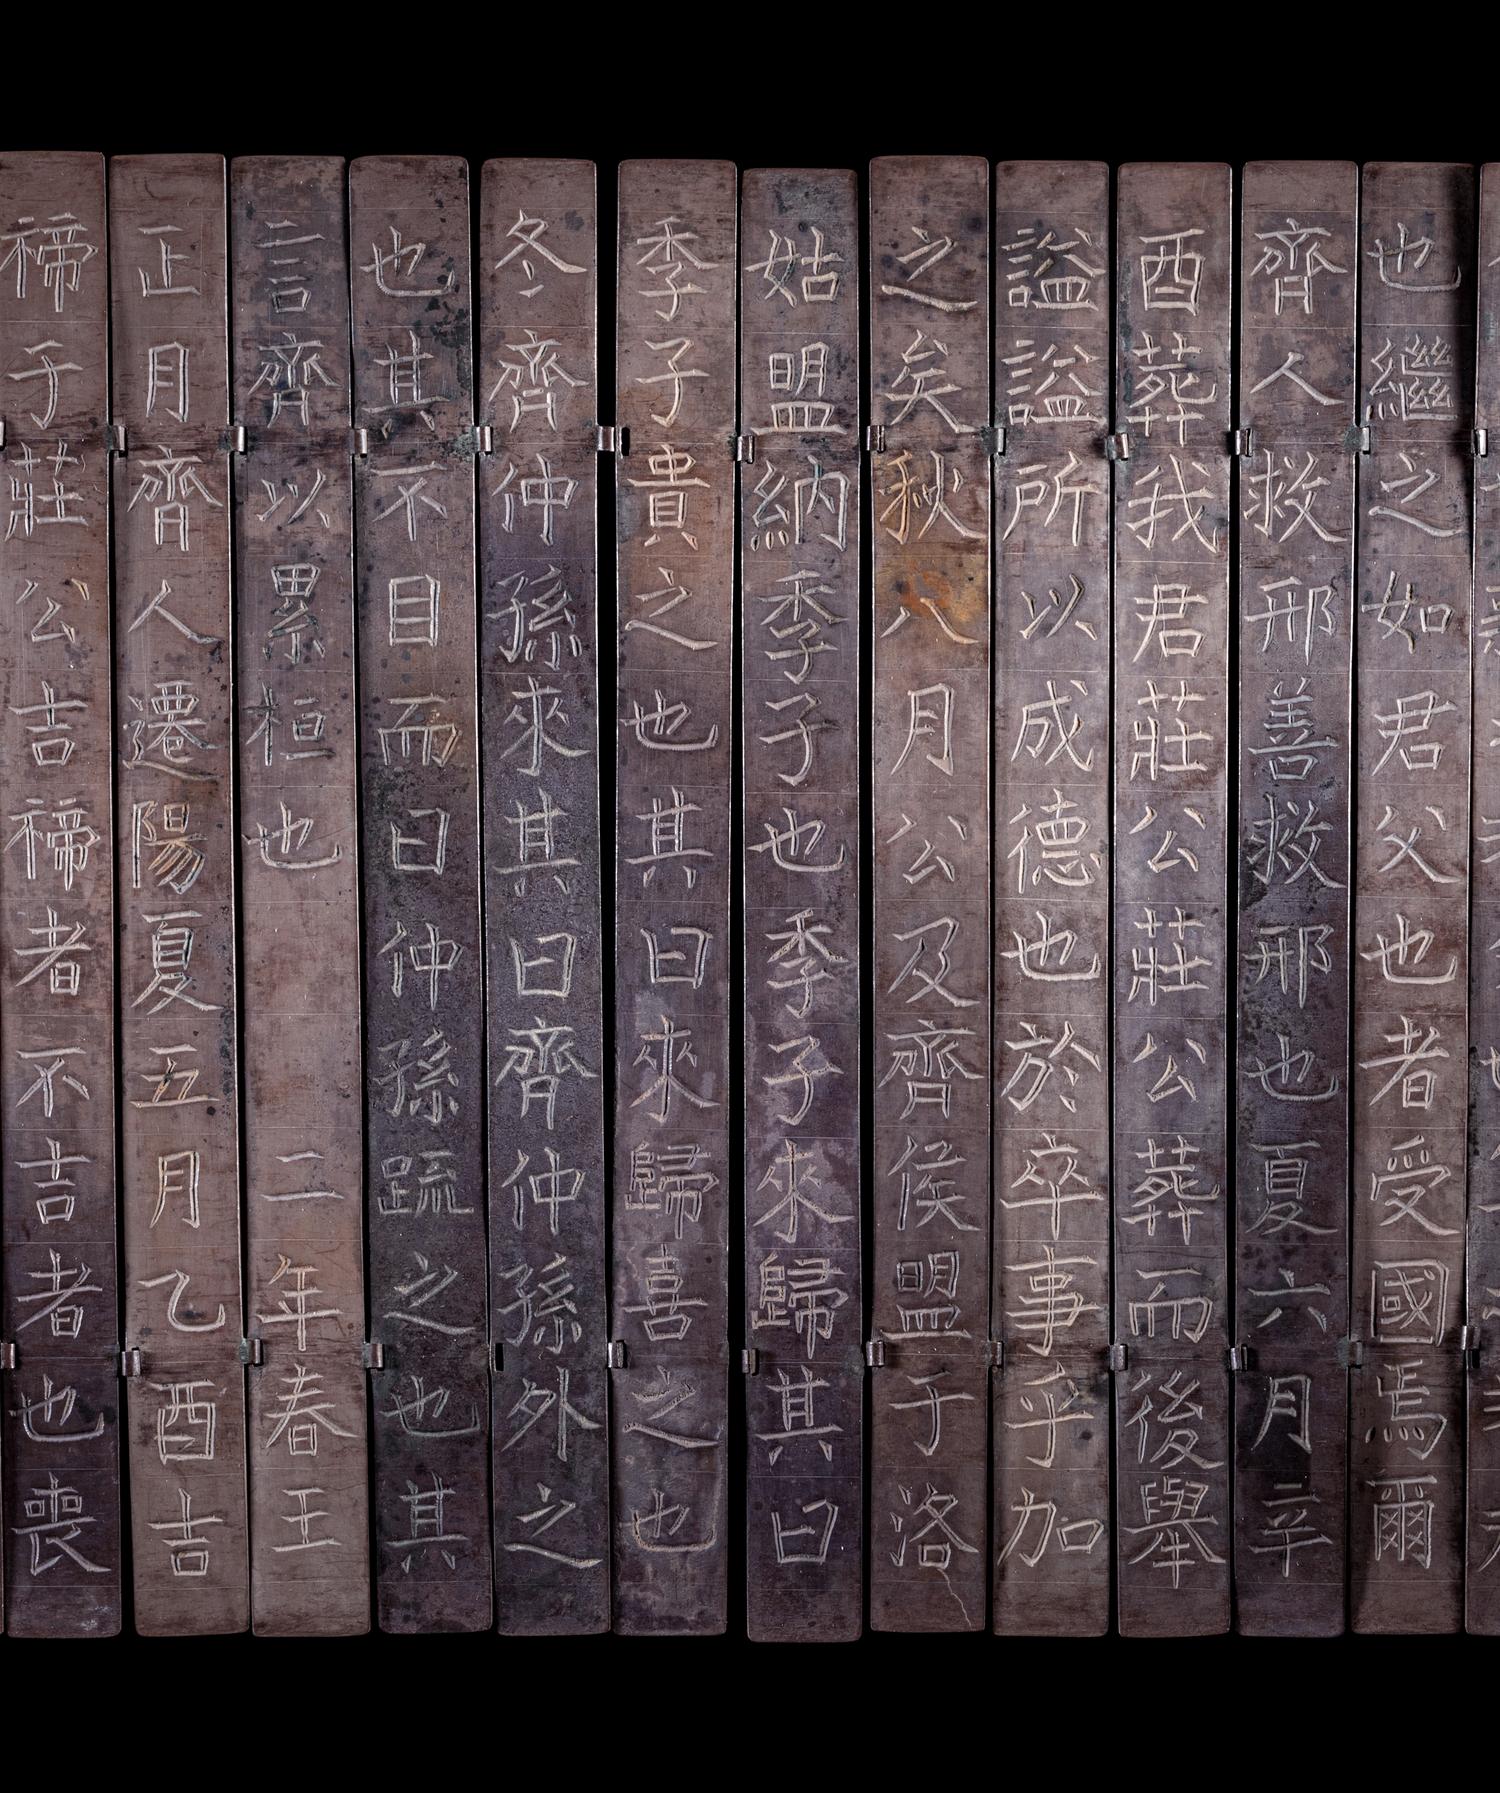 也繼之如君父也者受國焉爾
齊人救邢善救邢也夏六月辛
酉葬我君莊公莊公葬而後舉
謚謚所以成德也於卒事乎加
之矣秋八月公及齊侯盟于洛
姑盟納季子也季子來歸其曰
季子貴之也其曰來歸喜之也
冬齊仲孫來其曰齊仲孫外之
也其不目而曰仲孫疏之也其
言齊以累桓也 二年春王
正月齊人遷陽夏五月乙酉吉
禘于莊公吉禘者不吉者也喪